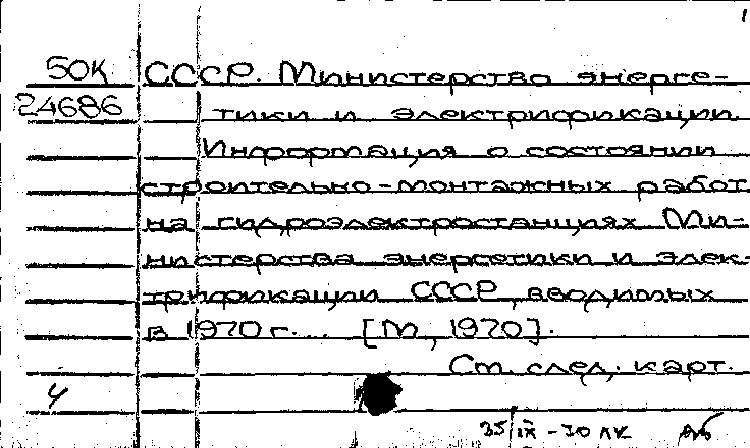 1
50К СССР. Министерство энерге-
24686 тики и электрификации.
Информация о состоянии
строительно-монтажных работ
на гидроэлектростанциях Ми-
нистерства энергетики и элек-
трификации СССР, вводимых
в 1970 г... [М., 1970].
См. след. карт.
4
35/IX-70 ЛК